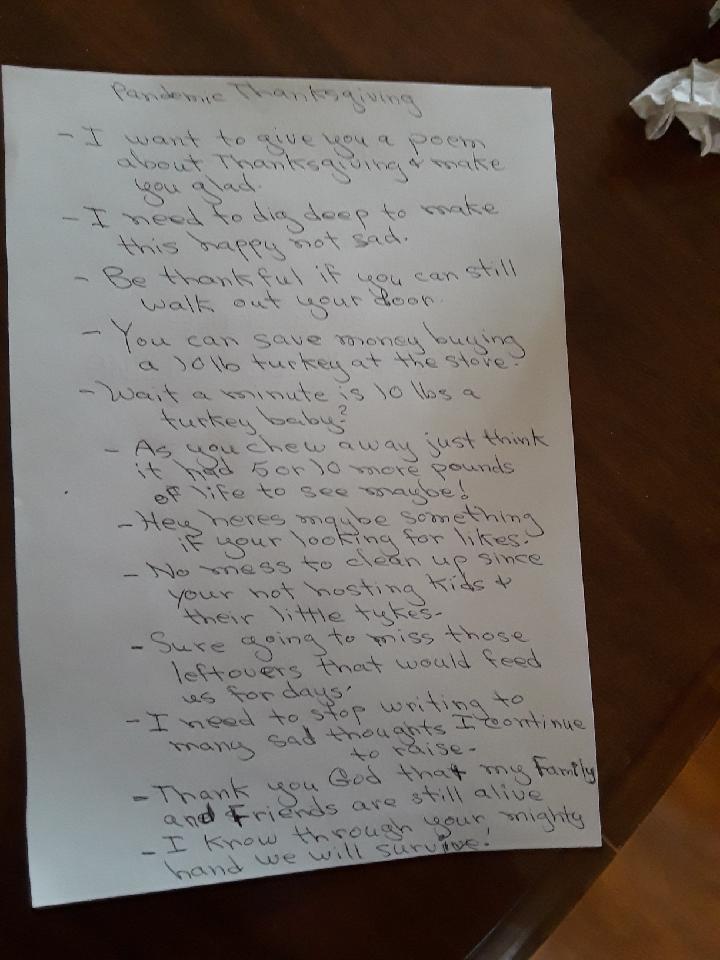 Pandemic Thanksgiving
- I want to give you a poem
about Thanksgiving & make
you glad.
- I need to dig deep to make
this happy not sad.
- Be thankful if you can still
walk out your door.
- You can save money buying
a 10 lb turkey at the store.
- Wait a minute is 10 lbs a
turkey baby?
- As you chew away just think
it had 5 or 10 more pounds
of life to see maybe!
- Hey heres maybe something
if your looking for likes.
- No mess to clean up since
your not hosting kids &
their little tykes-
- Sure going to miss those
leftovers that would feed
us for days.
- I need to stop writing to
many sad thoughts I continue
to raise-
- Thank you God that my Family
and Friends are still alive
- I know through your mighty
hand we will survive!